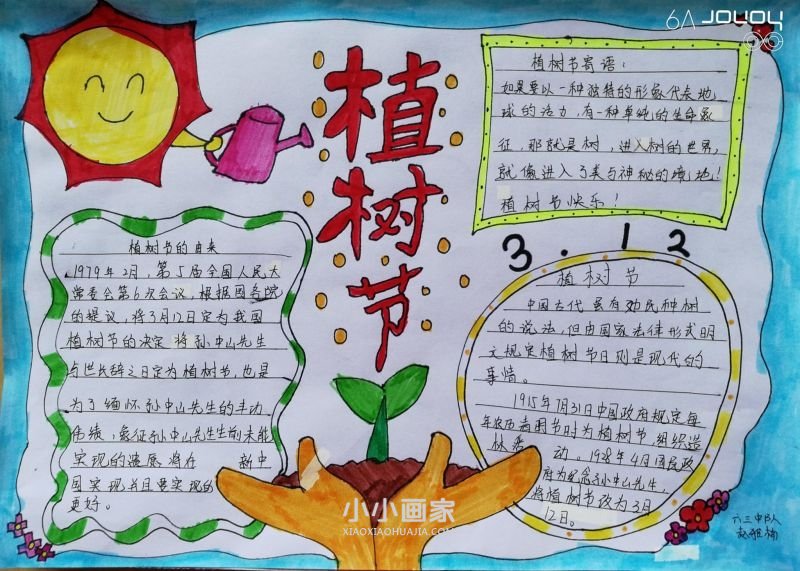 6A JOYOY
植树节
植树节寄语：
如果要以一种独特的形象代表地
球的活力，有一种单纯的生命象
征，那就是树，进入树的世界，
就像进入了类与神秘的境地！
植树节快乐！
3.12
植树节的由来
1979年2月，第5届全国人民大
常委会第6次会议，根据国务院
的提议，将3月12日定为我国
植树节的决定 将孙中山先生
与世长辞之日定为植树节，也是
为了缅怀孙中山先生的丰功
伟绩，象征孙中山先生生前未能
实现的遗愿将在 新中
国实现并且要实现的
更好。
植树节
中国古代虽有劝民种树
的说法，但由国家法律形式明
文规定植树节日则是现代的
事情。
1915年7月31日中国政府规定每
年农历清明节时为植树节，组织造
林 动。1928年4月国民政
府为纪念孙中山先生，
将植树节改为3月
12日。
小小画家
XIAOXIAOHUAJIA.COM
六三中队
赵雅楠